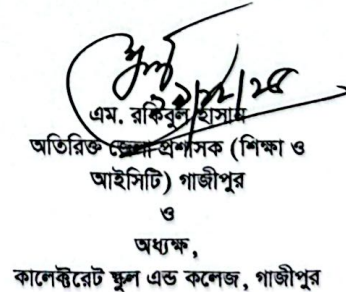 এম. রকিবুল হাসান
অতিরিক্ত জেলা প্রশাসক (শিক্ষা ও
আইসিটি) গাজীপুর
ও
অধ্যক্ষ,
কালেক্টরেট স্কুল এন্ড কলেজ, গাজীপুর